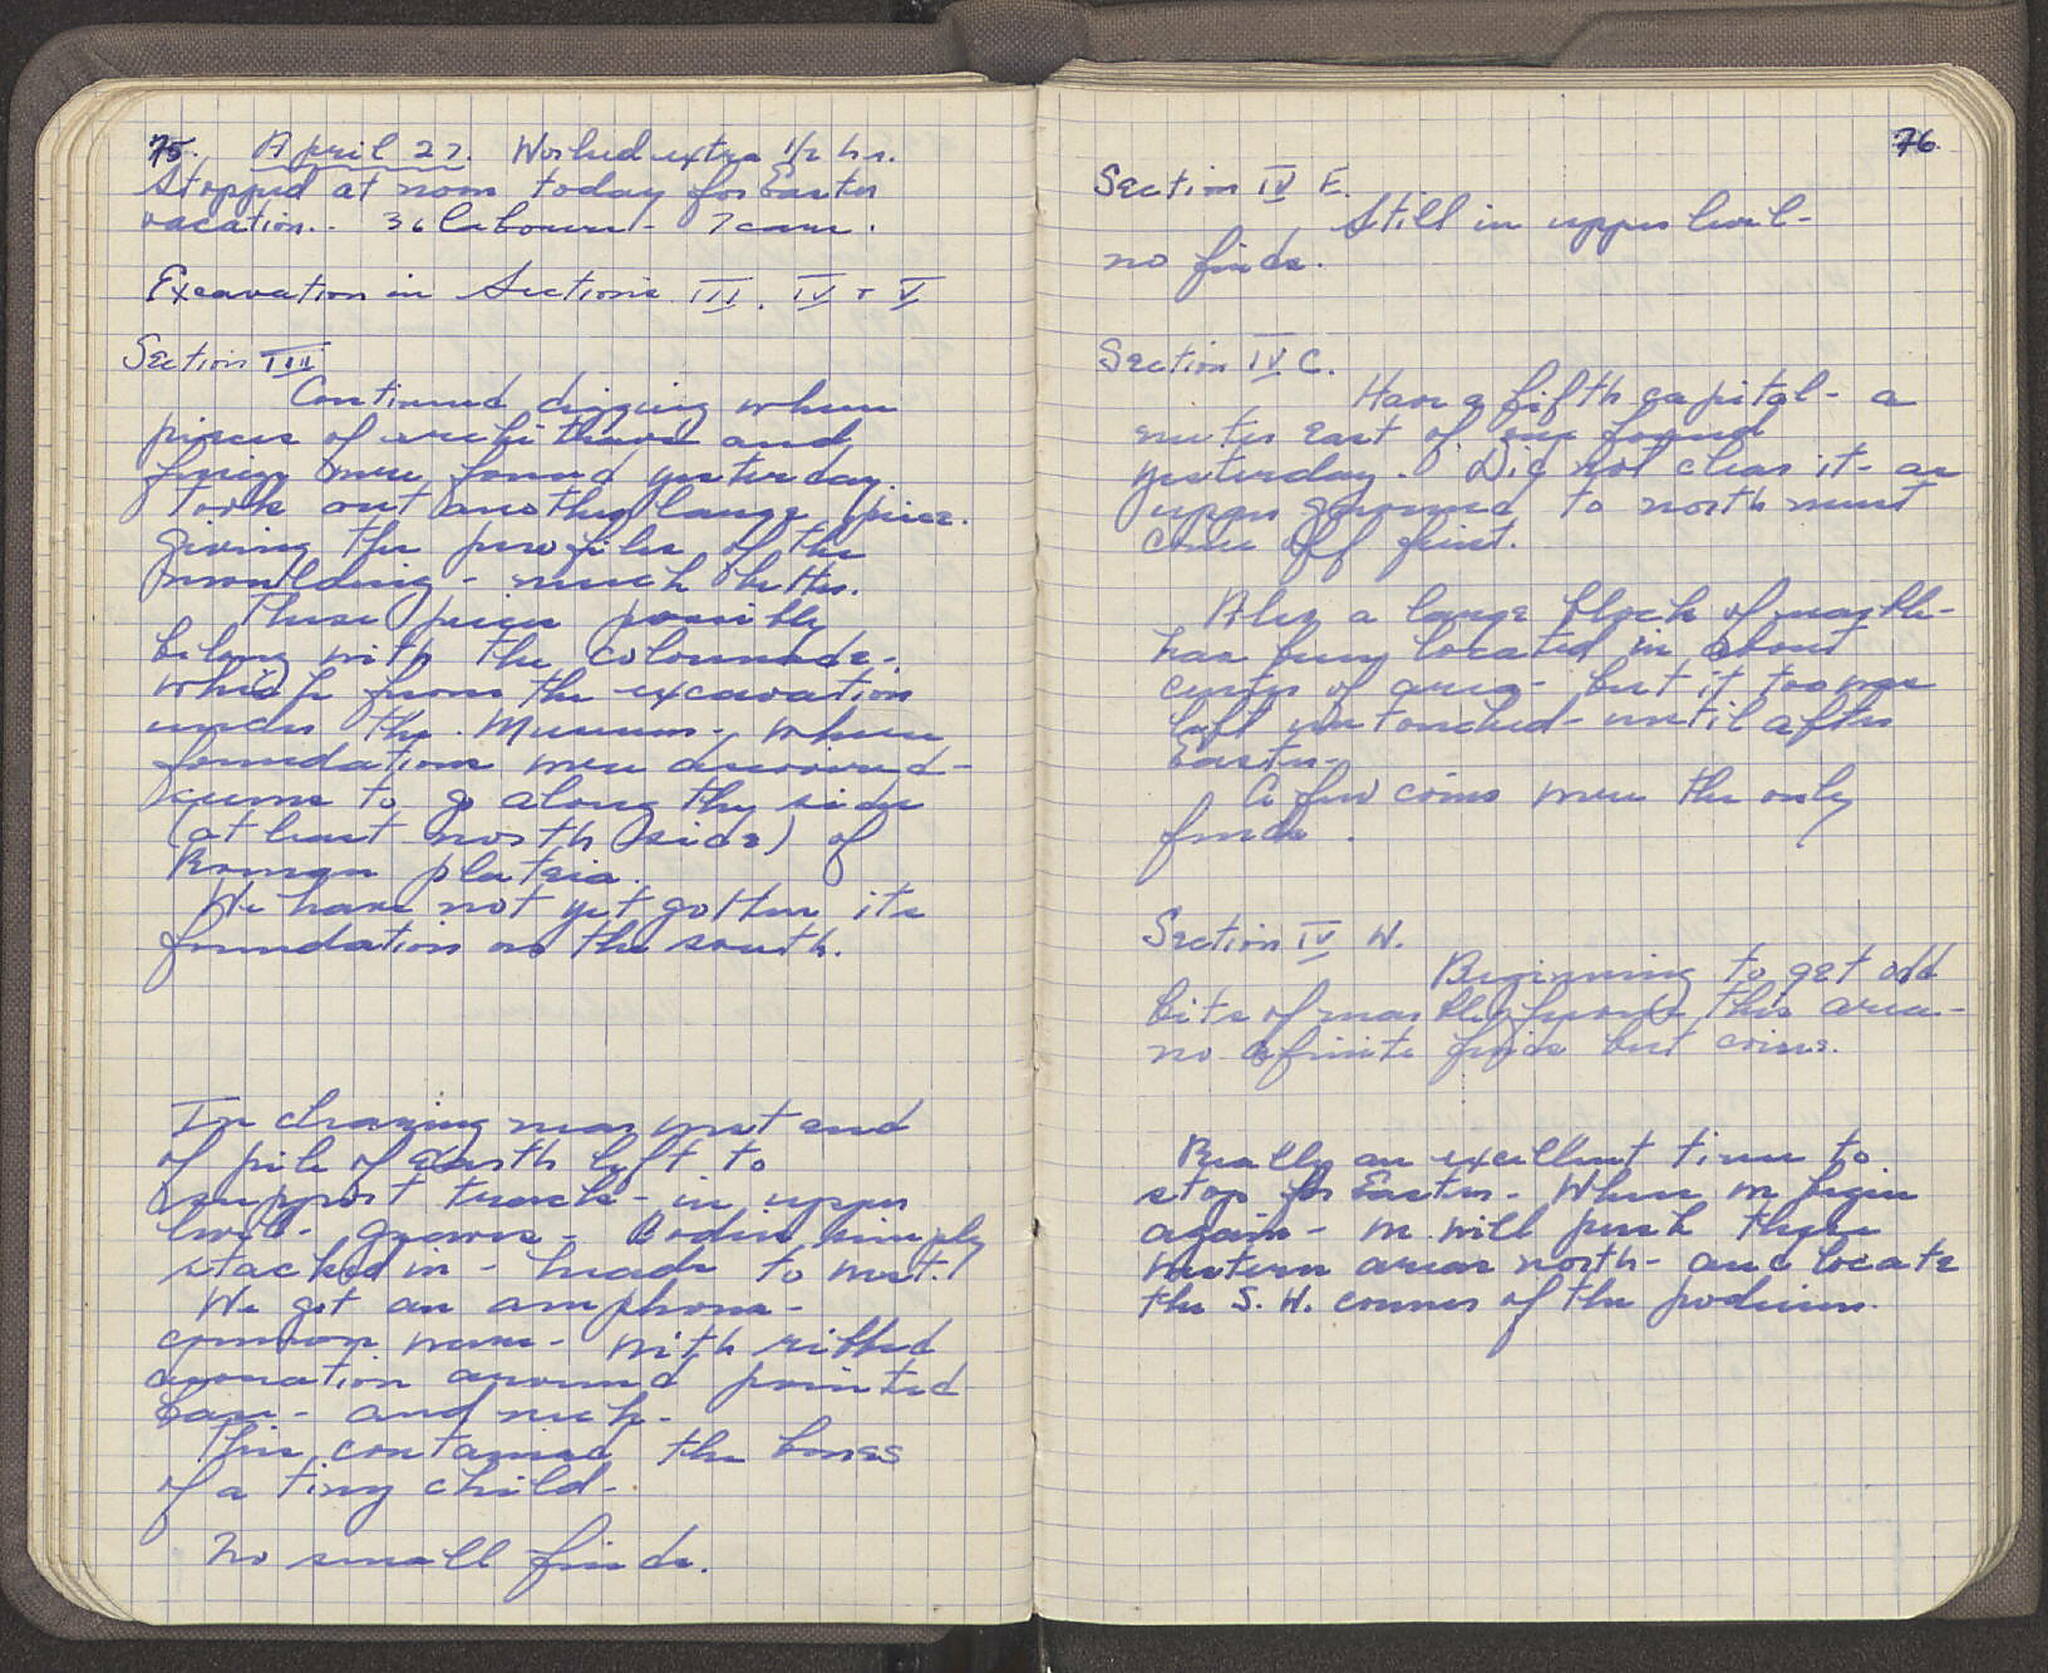 75. April 27. Worked extra 1/2 hr.
Stopped at noon today for Easter
vacation.. 36 labourers - 7 cars.
Excavation in Sections III. IV + V
Section III
Continued digging where
pieces of architrave and
frieze were found yesterday.
Took out another large piece.
giving the profiles of the
moulding - much better.
These pieces possibly
belong with the colonnade -
which from the excavation
under the Museum - where
foundations were discovered -
seems to go along the side
(at least north side) of
Roman plateia.
We have not yet gotten its
foundation on the south.
In clearing near west end
of pile of earth left to
support track - in upper
level - graves - bodies simply
stacked in - heads to west.
We got an amphora -
common ware - with ribbed
decoration around pointed
base - and neck -
This contained the bones
of a tiny child -
No small finds.
76.
Section IV E.
Still in upper level -
no finds.
Section IV C.
Have a fifth capital - a
meter east of one found
yesterday. Did not clear it - as
upper ground to north must
come off first.
Also a large block of marble -
has been located in about
center of area - but it too was
left untouched - until after
Easter -
A few coins were the only
finds.
Section IV W.
Beginning to get odd
bits of marble from this area -
no definite finds but coins.
Really an excellent time to
stop for Easter - When we begin
again - we will push these
western areas north - and locate
the S. W. corner of the podium.